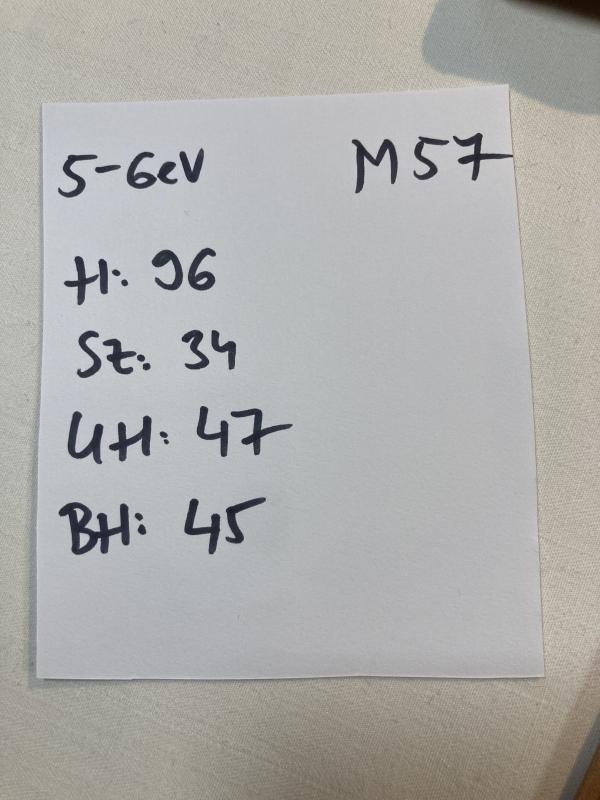 5-6eV M57
H: 96
Sz: 34
UH: 47
BH: 45